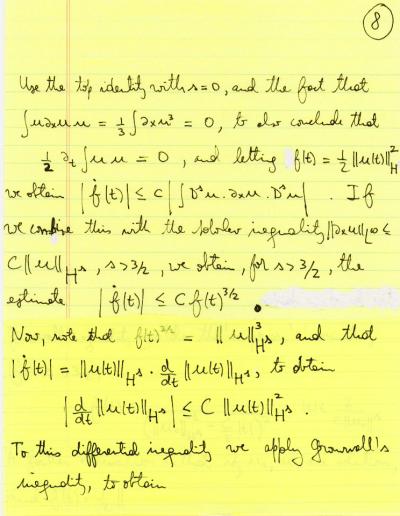 8
Use the top identity with s=0, and the fact that
∫u∂xu u = 1/3 ∫∂xu³ = 0, to also conclude that
1/2 ∂t ∫u u = 0, and letting f(t) = 1/2 ||u(t)||²_H^s
we obtain |ḟ(t)| ≤ C |∫D^s u · ∂xu · D^s u| . If
we combine this with the Sobolev inequality ||∂xu||_L∞ ≤
C||u||_H^s , s>3/2 , we obtain, for s>3/2, the
estimate |ḟ(t)| ≤ C f(t)^3/2 .
Now, note that f(t)^3/2 = ||u||³_H^s , and that
|ḟ(t)| = ||u(t)||_H^s · d/dt ||u(t)||_H^s , to obtain
|d/dt ||u(t)||_H^s| ≤ C ||u(t)||²_H^s .
To this differential inequality we apply Gronwall's
inequality, to obtain